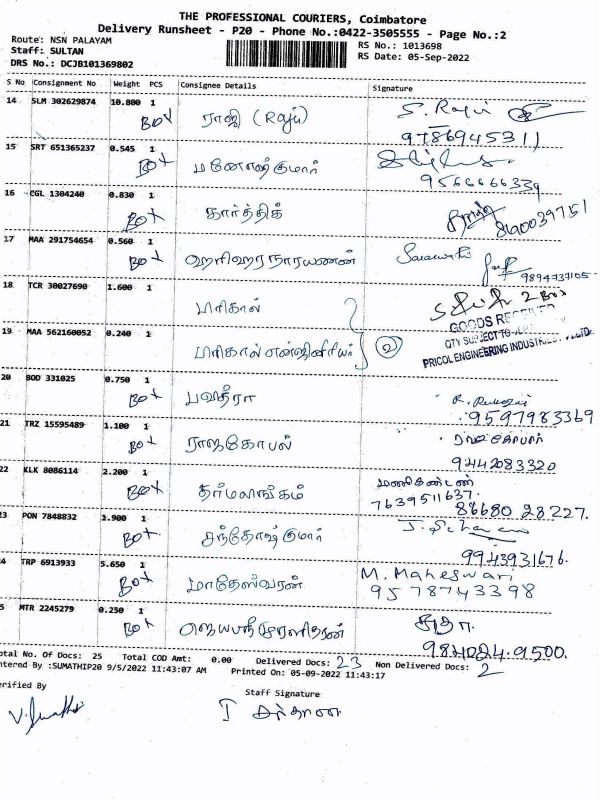 THE PROFESSIONAL COURIERS, Coimbatore
Delivery Runsheet - P20 - Phone No.:0422-3505555 - Page No.:2
Route: NSN PALAYAM
Staff: SULTAN
DRS No.: DCJB101369802
RS No.: 1013698
RS Date: 05-Sep-2022
S No Consignment No Weight PCS Consignee Details Signature
14 SLM 302629874 10.800 1 Box ராஜி (Raju) S. Raju
9786945311
15 SRT 651365237 0.545 1 Box மனோஷ்குமார்
9566666339
16 CGL 1304240 0.830 1 Box கார்த்திக் 8190039751
17 MAA 291754654 0.560 1 Box ஹரிஹரநாராயணன் Saraswathi
9894737105
18 TCR 30027690 1.600 1 பரிகால் 2 Box
GOODS RECEIVED
QTY SUBJECT TO
PRICOL ENGINEERING INDUSTRIES LTD.
19 MAA 562160052 0.240 1 பரிகால் என்ஜினிரிங் 2
20 BOD 331025 0.750 1 Box பவித்ரா
9597983369
21 TRZ 15595489 1.100 1 Box ராஜகோபல் ராஜகோபால்
9442083320
22 KLK 8086114 2.200 1 Box தர்மலிங்கம் மணிகண்டன்
7639511637.
88680 28227.
23 PON 7848832 1.900 1 Box சந்தோஷ்குமார்
9943931676.
24 TRP 6913933 5.650 1 Box மாதேஸ்வரன் M. Maheswari
9578743398
25 MTR 2245279 0.250 1 Box ஜெயஸ்ரீமுரளிதரன் சுதா
984024 9500.
Total No. Of Docs: 25 Total COD Amt: 0.00 Delivered Docs: 23 Non Delivered Docs: 2
Entered By :SUMATHIP20 9/5/2022 11:43:07 AM Printed On: 05-09-2022 11:43:17
Verified By
Staff Signature